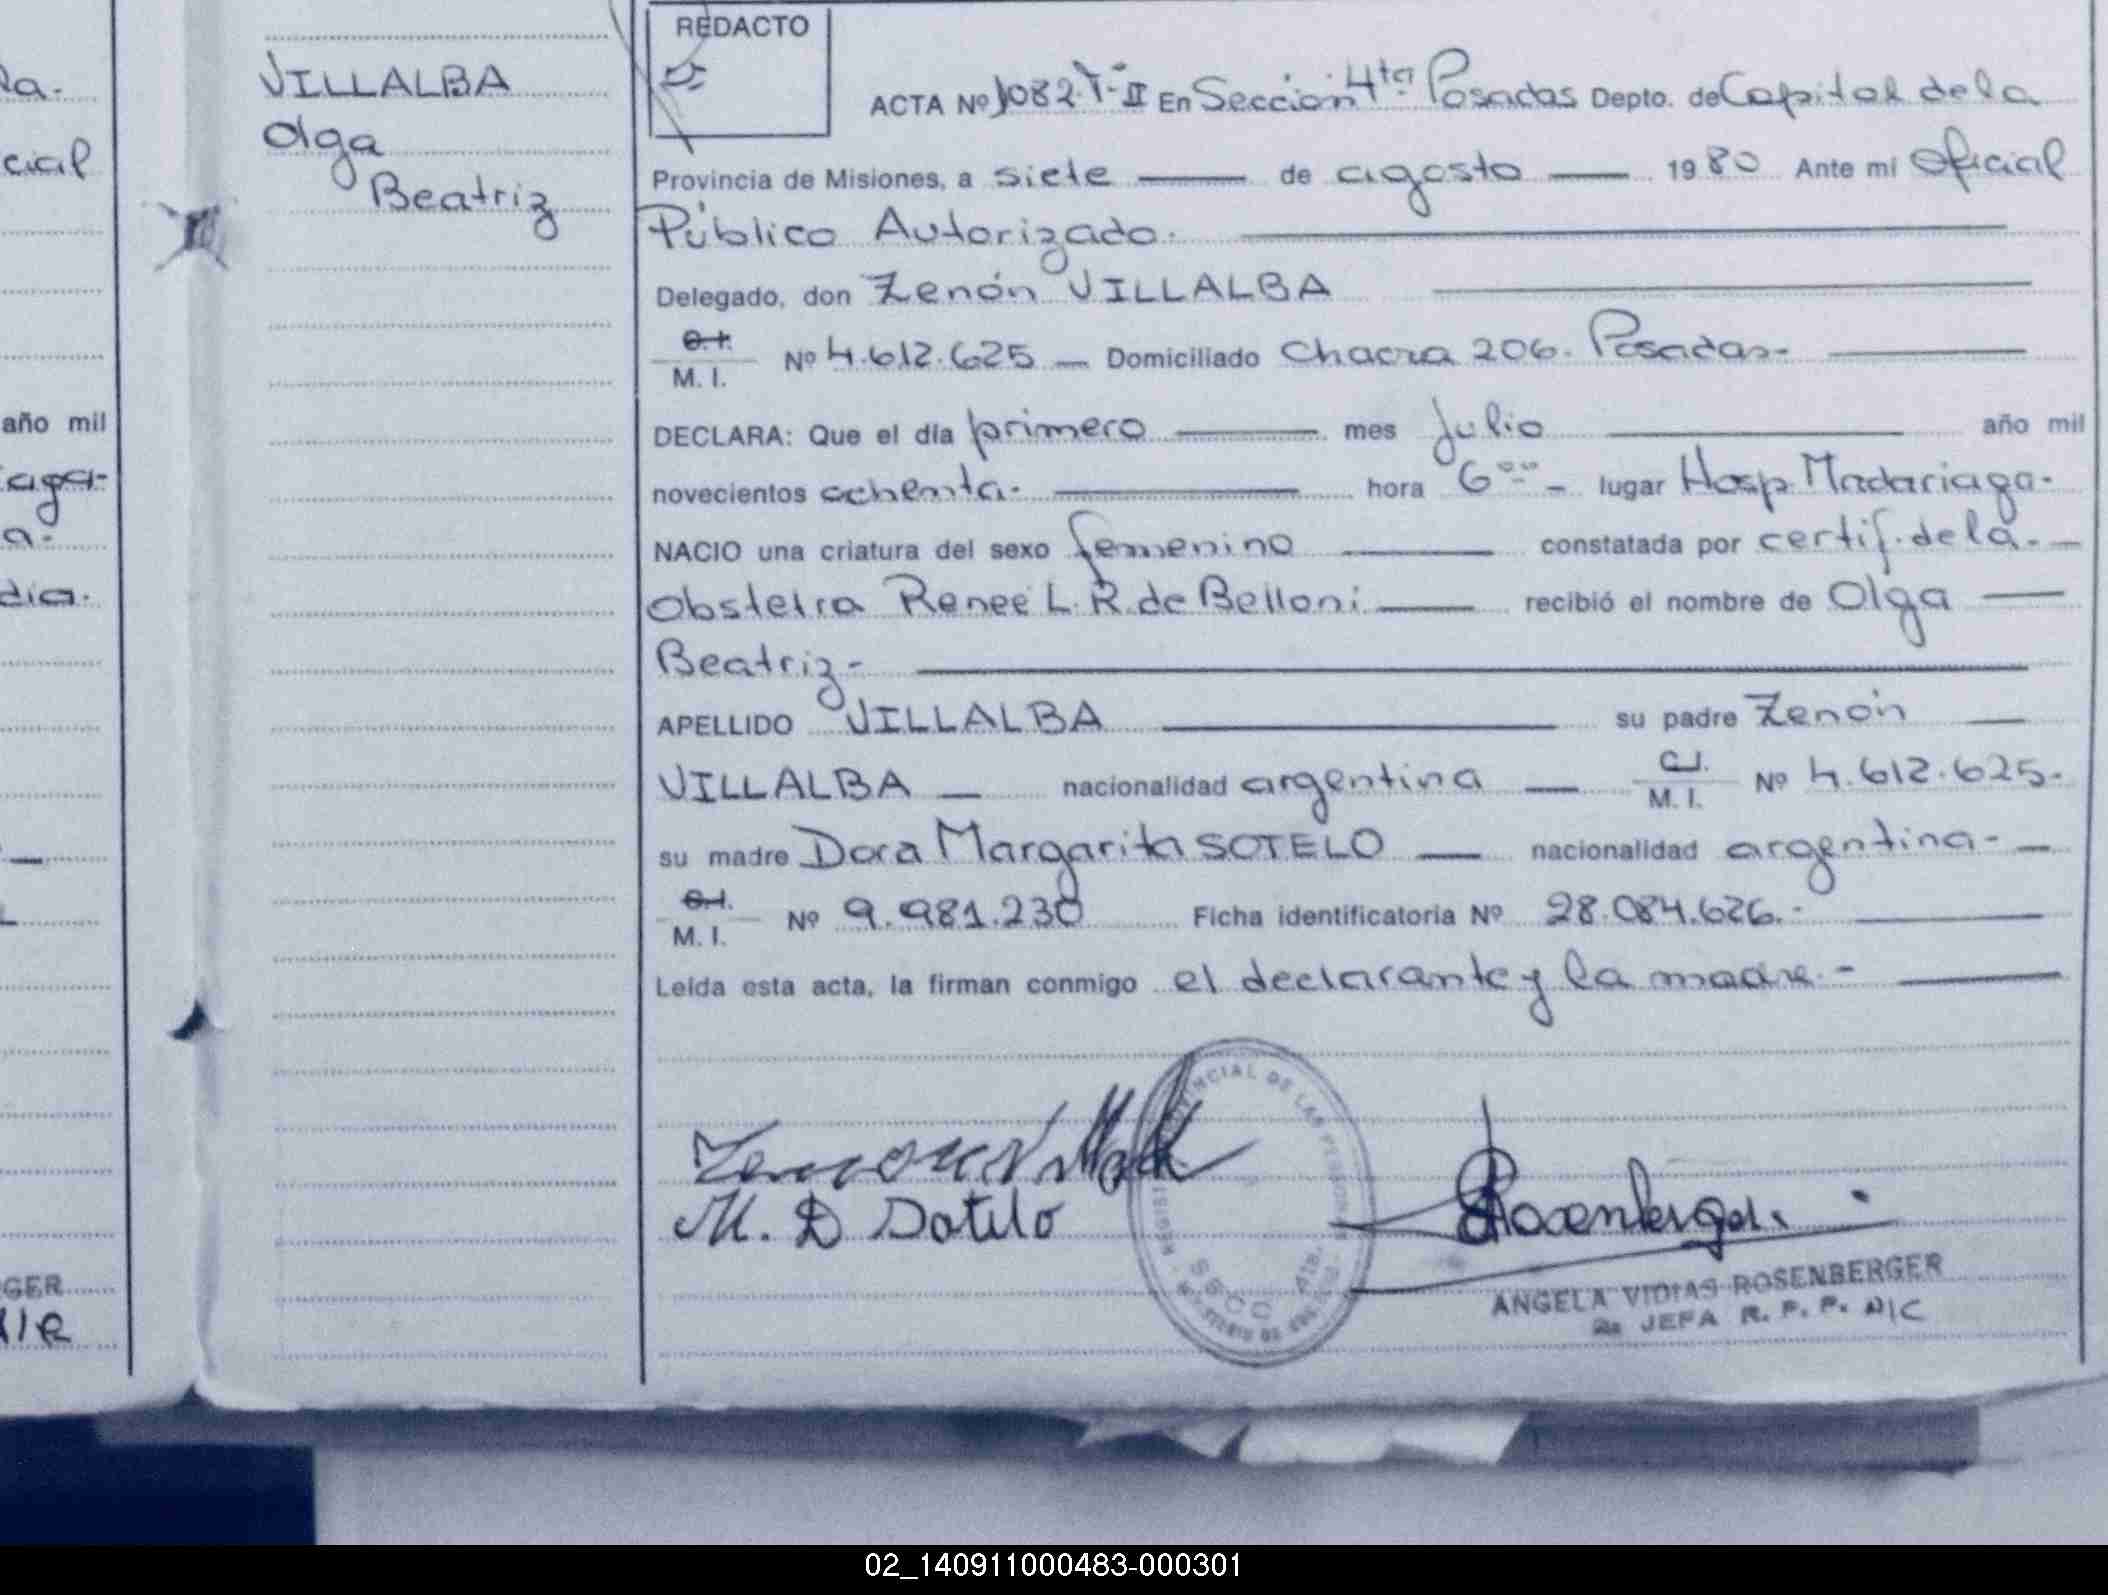 la.
cial
año mil
iaga-
a.
dia.
GER
VILLALBA
Olga
Beatriz
REDACTO
ACTA Nº 1082 T-II En Sección 4ta. Posadas Depto. de Capital de la
Provincia de Misiones, a siete de agosto 1980 Ante mi Oficial
Público Autorizado.
Delegado, don Zenón VILLALBA
C.I.
M. I. Nº 4.612.625 Domiciliado Chacra 206. Posadas-
DECLARA: Que el día primero mes Julio año mil
novecientos ochenta. hora 6°° lugar Hosp. Madariaga.
NACIO una criatura del sexo femenino constatada por certif. de la.
Obstetra Renee L. R. de Belloni recibió el nombre de Olga
Beatriz-
APELLIDO VILLALBA su padre Zenón
VILLALBA nacionalidad argentina C.I.
M. I. Nº 4.612.625.
su madre Dora Margarita SOTELO nacionalidad argentina-
C.I.
M. I. Nº 9.981.230 Ficha identificatoria Nº 28.084.626.-
Leída esta acta, la firman conmigo el declarante y la madre.-
Zenon Villalba
M. D Sotelo
Rosenberger
ANGELA VIDIAS ROSENBERGER
2a JEFA R. P. P. N/C
PROVINCIAL DE LAS PERSONAS
SECC 4ta.
02_140911000483-000301